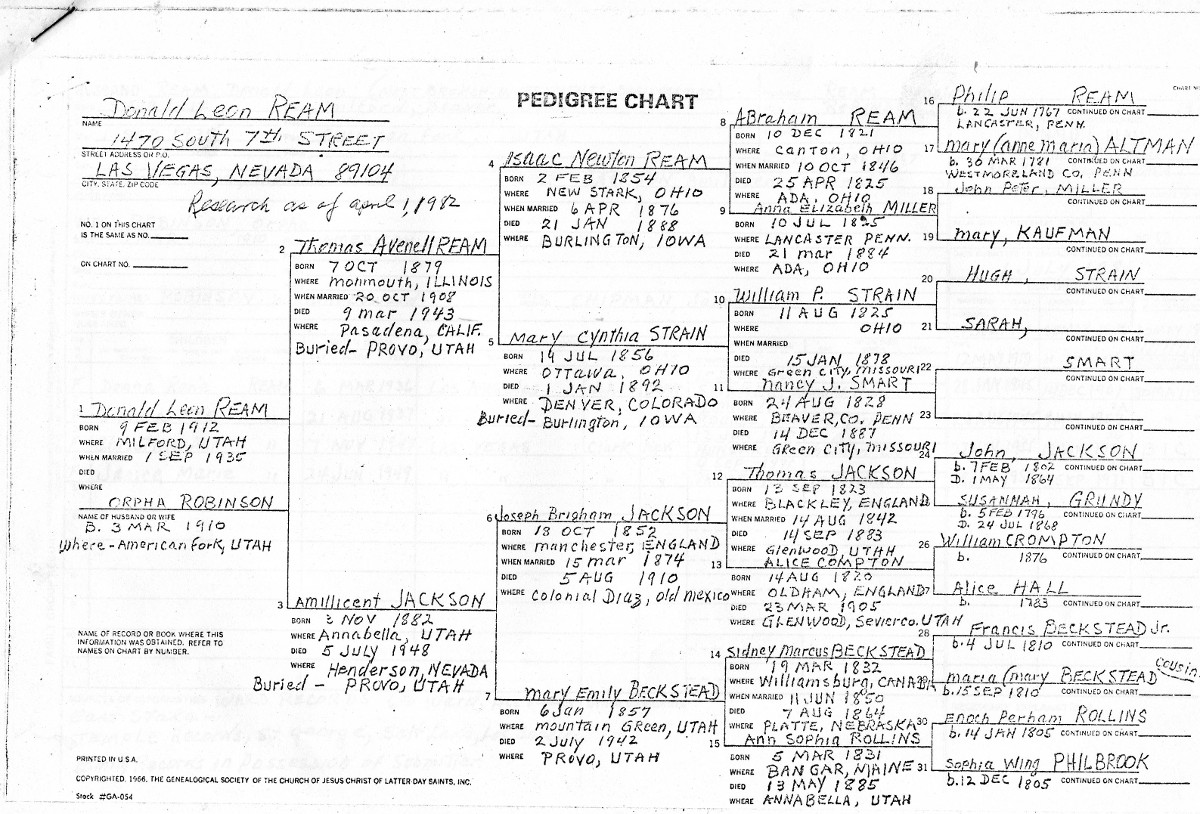 PEDIGREE CHART
CHART NO.
Donald Leon REAM
NAME
1470 South 7th STREET
STREET ADDRESS OR P.O.
LAS VEGAS, NEVADA 89104
CITY, STATE, ZIP CODE
Research as of april 1, 1982
NO. 1 ON THIS CHART
IS THE SAME AS NO.
ON CHART NO.
1 Donald Leon REAM
BORN 9 FEB 1912
WHERE MILFORD, UTAH
WHEN MARRIED 1 SEP 1935
DIED
WHERE
ORPHA ROBINSON
NAME OF HUSBAND OR WIFE
B. 3 MAR 1910
Where - American Fork, UTAH
NAME OF RECORD OR BOOK WHERE THIS
INFORMATION WAS OBTAINED. REFER TO
NAMES ON CHART BY NUMBER.
PRINTED IN U.S.A.
COPYRIGHTED, 1966, THE GENEALOGICAL SOCIETY OF THE CHURCH OF JESUS CHRIST OF LATTER DAY SAINTS, INC.
Stock #GA-054
2 Thomas Avenell REAM
BORN 7 OCT 1879
WHERE monmouth, ILLINOIS
WHEN MARRIED 20 OCT 1908
DIED 9 mar 1943
WHERE Pasadena, CALIF.
Buried - PROVO, UTAH
3 Amillicent JACKSON
BORN 2 NOV 1882
WHERE Annabella, UTAH
DIED 5 JULY 1948
WHERE Henderson, NEVADA
Buried - PROVO, UTAH
4 Isaac Newton REAM
BORN 2 FEB 1854
WHERE NEW STARK, OHIO
WHEN MARRIED 6 APR 1876
DIED 21 JAN 1888
WHERE BURLINGTON, IOWA
5 Mary Cynthia STRAIN
BORN 14 JUL 1856
WHERE OTTawa, OHIO
DIED 1 JAN 1892
WHERE DENVER, COLORADO
Buried - Burlington, IOWA
6 Joseph Brigham JACKSON
BORN 18 OCT 1852
WHERE manchester, ENGLAND
WHEN MARRIED 15 mar 1874
DIED 5 AUG 1910
WHERE Colonial Diaz, old mexico
7 mary Emily BECKSTEAD
BORN 6 Jan 1857
WHERE mountain Green, UTAH
DIED 2 July 1942
WHERE PROVO, UTAH
8 ABraham REAM
BORN 10 DEC 1821
WHERE Canton, OHIO
WHEN MARRIED 10 OCT 1846
DIED 25 APR 1825
WHERE ADA, OHIO
9 Anna Elizabeth MILLER
BORN 10 JUL 1825
WHERE LANCASTER PENN.
DIED 21 mar 1884
WHERE ADA, OHIO
10 William P. STRAIN
BORN 11 AUG 1825
WHERE OHIO
WHEN MARRIED
DIED 15 JAN 1878
WHERE Green City, missouri
11 Nancy J. SMART
BORN 24 AUG 1828
WHERE BEAVER, CO. PENN
DIED 14 DEC 1887
WHERE Green City, MISSOURI
12 Thomas JACKSON
BORN 13 SEP 1823
WHERE BLACKLEY, ENGLAND
WHEN MARRIED 14 AUG 1842
DIED 14 SEP 1883
WHERE Glenwood, UTAH
13 ALICE COMPTON
BORN 14 AUG 1820
WHERE OLDHAM, ENGLAND
DIED 23 MAR 1905
WHERE GLENWOOD, Sevier co. UTAH
14 Sidney Marcus BECKSTEAD
BORN 19 MAR 1832
WHERE Williamsburg, CANADA
WHEN MARRIED 11 JUN 1850
DIED 7 AUG 1864
WHERE PLATTE, NEBRASKA
15 Ann Sophia ROLLINS
BORN 5 MAR 1831
WHERE BANGAR, MAINE
DIED 13 MAY 1885
WHERE ANNABELLA, UTAH
16 Philip REAM
b. 22 JUN 1767 CONTINUED ON CHART
LANCASTER, PENN.
17 mary (anne maria) ALTMAN
b. 30 MAR 1781 CONTINUED ON CHART
WESTMORELAND CO. PENN
18 John Peter, MILLER
CONTINUED ON CHART
19 mary, KAUFMAN
CONTINUED ON CHART
20 HUGH, STRAIN
CONTINUED ON CHART
21 SARAH,
CONTINUED ON CHART
22 SMART
CONTINUED ON CHART
23
CONTINUED ON CHART
24 John, JACKSON
b. 7 FEB 1802 CONTINUED ON CHART
D. 1 MAY 1864
SUSANNAH, GRUNDY
b. 5 FEB 1796 CONTINUED ON CHART
D. 24 JUL 1868
26 William CROMPTON
b. 1876 CONTINUED ON CHART
27 Alice HALL
b. 1783 CONTINUED ON CHART
28 Francis BECKSTEAD Jr.
b. 4 JUL 1810 CONTINUED ON CHART
maria (mary BECKSTEAD cousin
b. 15 SEP 1810 CONTINUED ON CHART
30 Enoch Perham ROLLINS
b. 14 JAN 1805 CONTINUED ON CHART
31 Sophia Wing PHILBROOK
b. 12 DEC 1805 CONTINUED ON CHART